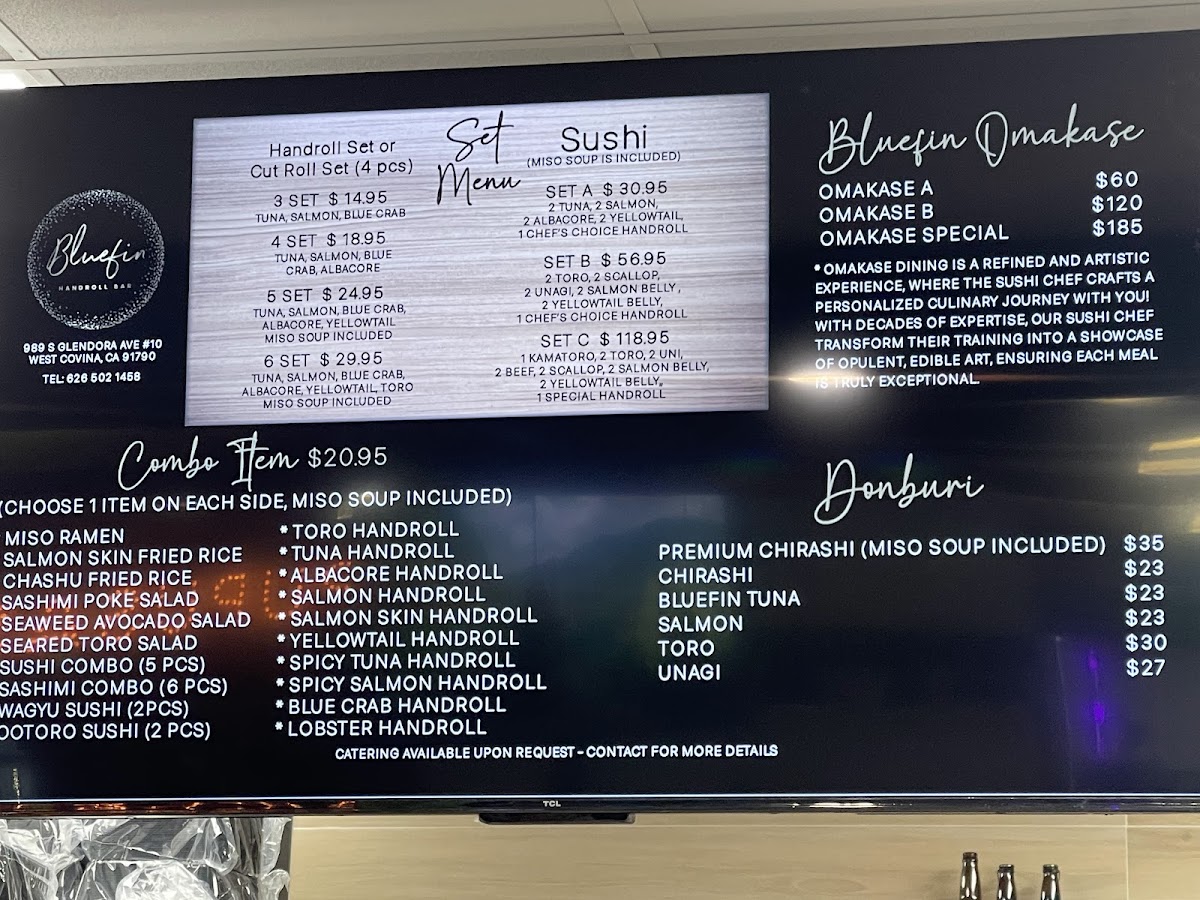 Bluefin
HANDROLL BAR
989 S GLENDORA AVE #10
WEST COVINA, CA 91790
TEL: 626 502 1458
Set
Menu
Handroll Set or
Cut Roll Set (4 pcs)
3 SET $ 14.95
TUNA, SALMON, BLUE CRAB
4 SET $ 18.95
TUNA, SALMON, BLUE
CRAB, ALBACORE
5 SET $ 24.95
TUNA, SALMON, BLUE CRAB,
ALBACORE, YELLOWTAIL
MISO SOUP INCLUDED
6 SET $ 29.95
TUNA, SALMON, BLUE CRAB,
ALBACORE, YELLOWTAIL, TORO
MISO SOUP INCLUDED
Sushi
(MISO SOUP IS INCLUDED)
SET A $ 30.95
2 TUNA, 2 SALMON,
2 ALBACORE, 2 YELLOWTAIL,
1 CHEF'S CHOICE HANDROLL
SET B $ 56.95
2 TORO, 2 SCALLOP,
2 UNAGI, 2 SALMON BELLY,
2 YELLOWTAIL BELLY,
1 CHEF'S CHOICE HANDROLL
SET C $ 118.95
1 KAMATORO, 2 TORO, 2 UNI,
2 BEEF, 2 SCALLOP, 2 SALMON BELLY,
2 YELLOWTAIL BELLY,
1 SPECIAL HANDROLL
Bluefin Omakase
OMAKASE A $60
OMAKASE B $120
OMAKASE SPECIAL $185
* OMAKASE DINING IS A REFINED AND ARTISTIC
EXPERIENCE, WHERE THE SUSHI CHEF CRAFTS A
PERSONALIZED CULINARY JOURNEY WITH YOU!
WITH DECADES OF EXPERTISE, OUR SUSHI CHEF
TRANSFORM THEIR TRAINING INTO A SHOWCASE
OF OPULENT, EDIBLE ART, ENSURING EACH MEAL
IS TRULY EXCEPTIONAL.
Combo Item $20.95
(CHOOSE 1 ITEM ON EACH SIDE, MISO SOUP INCLUDED)
MISO RAMEN
SALMON SKIN FRIED RICE
CHASHU FRIED RICE
SASHIMI POKE SALAD
SEAWEED AVOCADO SALAD
SEARED TORO SALAD
SUSHI COMBO (5 PCS)
SASHIMI COMBO (6 PCS)
WAGYU SUSHI (2PCS)
OOTORO SUSHI (2 PCS)
* TORO HANDROLL
* TUNA HANDROLL
* ALBACORE HANDROLL
* SALMON HANDROLL
* SALMON SKIN HANDROLL
* YELLOWTAIL HANDROLL
* SPICY TUNA HANDROLL
* SPICY SALMON HANDROLL
* BLUE CRAB HANDROLL
* LOBSTER HANDROLL
Donburi
PREMIUM CHIRASHI (MISO SOUP INCLUDED) $35
CHIRASHI $23
BLUEFIN TUNA $23
SALMON $23
TORO $30
UNAGI $27
CATERING AVAILABLE UPON REQUEST - CONTACT FOR MORE DETAILS
TCL